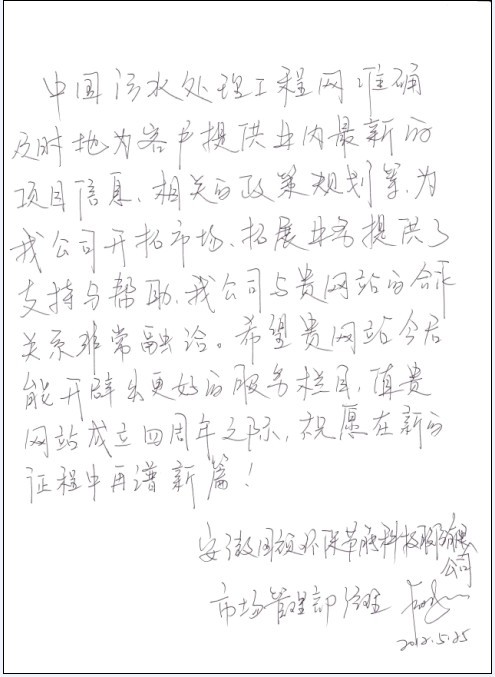 中国污水处理工程网准确
及时地为客户提供业内最新的
项目信息、相关的政策规划等，为
我公司开拓市场、拓展业务提供了
支持与帮助，我公司与贵网站的合作
关系非常融洽。希望贵网站今后
能开辟出更好的服务栏目，值贵
网站成立四周年之际，祝愿在新的
征程中再谱新篇！
安徽国祯环保节能科技股份有限
公司
市场管理部经理
2012.5.25